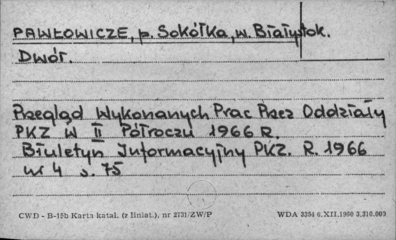 PAWŁOWICZE, p. Sokółka, w. Białystok.
Dwór.
Przegląd Wykonanych Prac Przez Oddziały
PKZ W II Półroczu 1966 R.
Biuletyn Informacyjny PKZ. R. 1966
nr 4 s. 75
CWD - B-15b Karta katal. (z liniat.), nr 2731/ZW/P WDA 3354 c.XII.1960 3.310.000